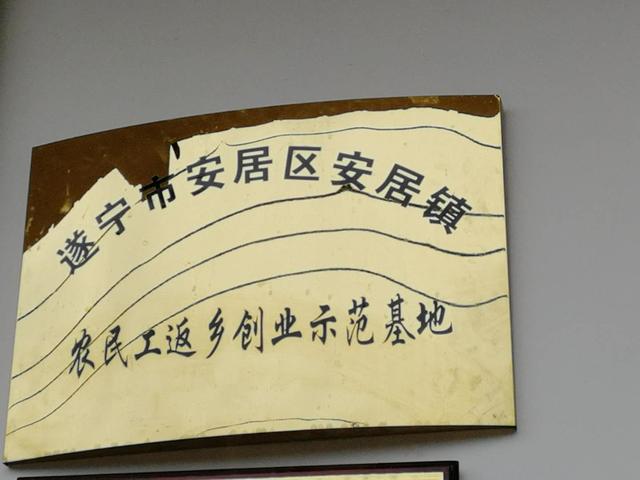 遂宁市安居区安居镇
农民工返乡创业示范基地